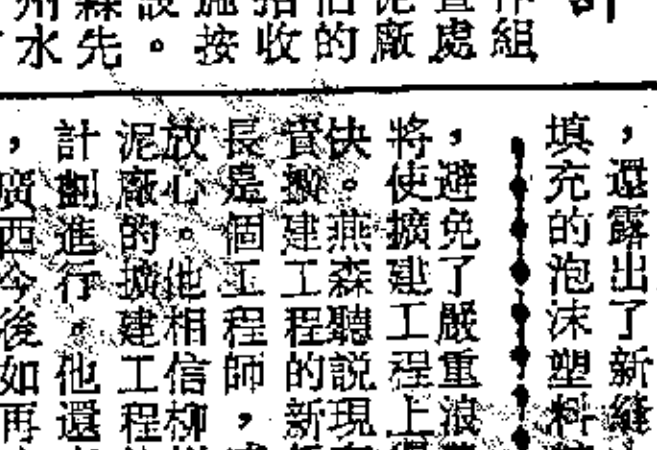 組
處
廠
的
收
接
。
先
水
，還露出了新縫
填充的泡沫塑料
，避免了嚴重浪
將使擴建工程上
快。燕森聽説現
建工程的新
長是個工程師，
放心。他相信柳
泥廠的擴建工程
計劃進行。他還
，廣西今後如再